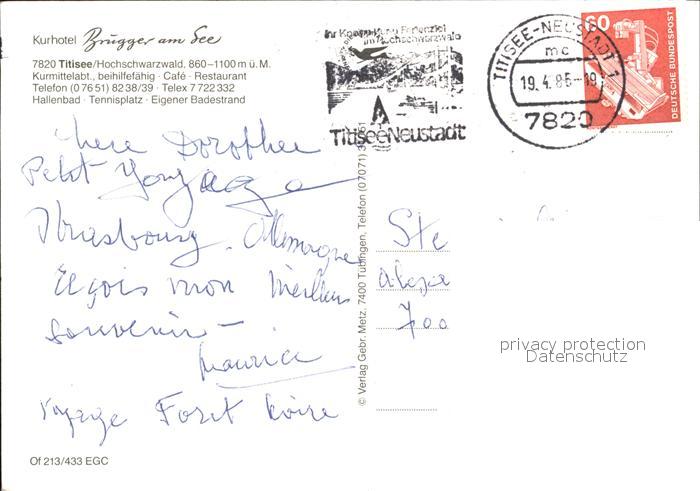 Kurhotel Brugger am See
7820 Titisee/Hochschwarzwald, 860–1100 m ü. M.
Kurmittelabt., beihilfefähig · Café · Restaurant
Telefon (0 76 51) 82 38/39 · Telex 7 722 332
Hallenbad · Tennisplatz · Eigener Badestrand
Ferienziel
im Hochschwarzwald
Titisee-Neustadt
TITISEE-NEUSTADT 1
mc
19.4.86-19
7820
60
DEUTSCHE BUNDESPOST
chère Dorothée
Petit Voyage
Strasbourg. Allemagne
Reçois mon meilleur
souvenir –
Maurice
Voyage Foret Noire
© Verlag Gebr. Metz, 7400 Tübingen, Telefon (07071)
Ste
700
privacy protection
Datenschutz
Of 213/433 EGC